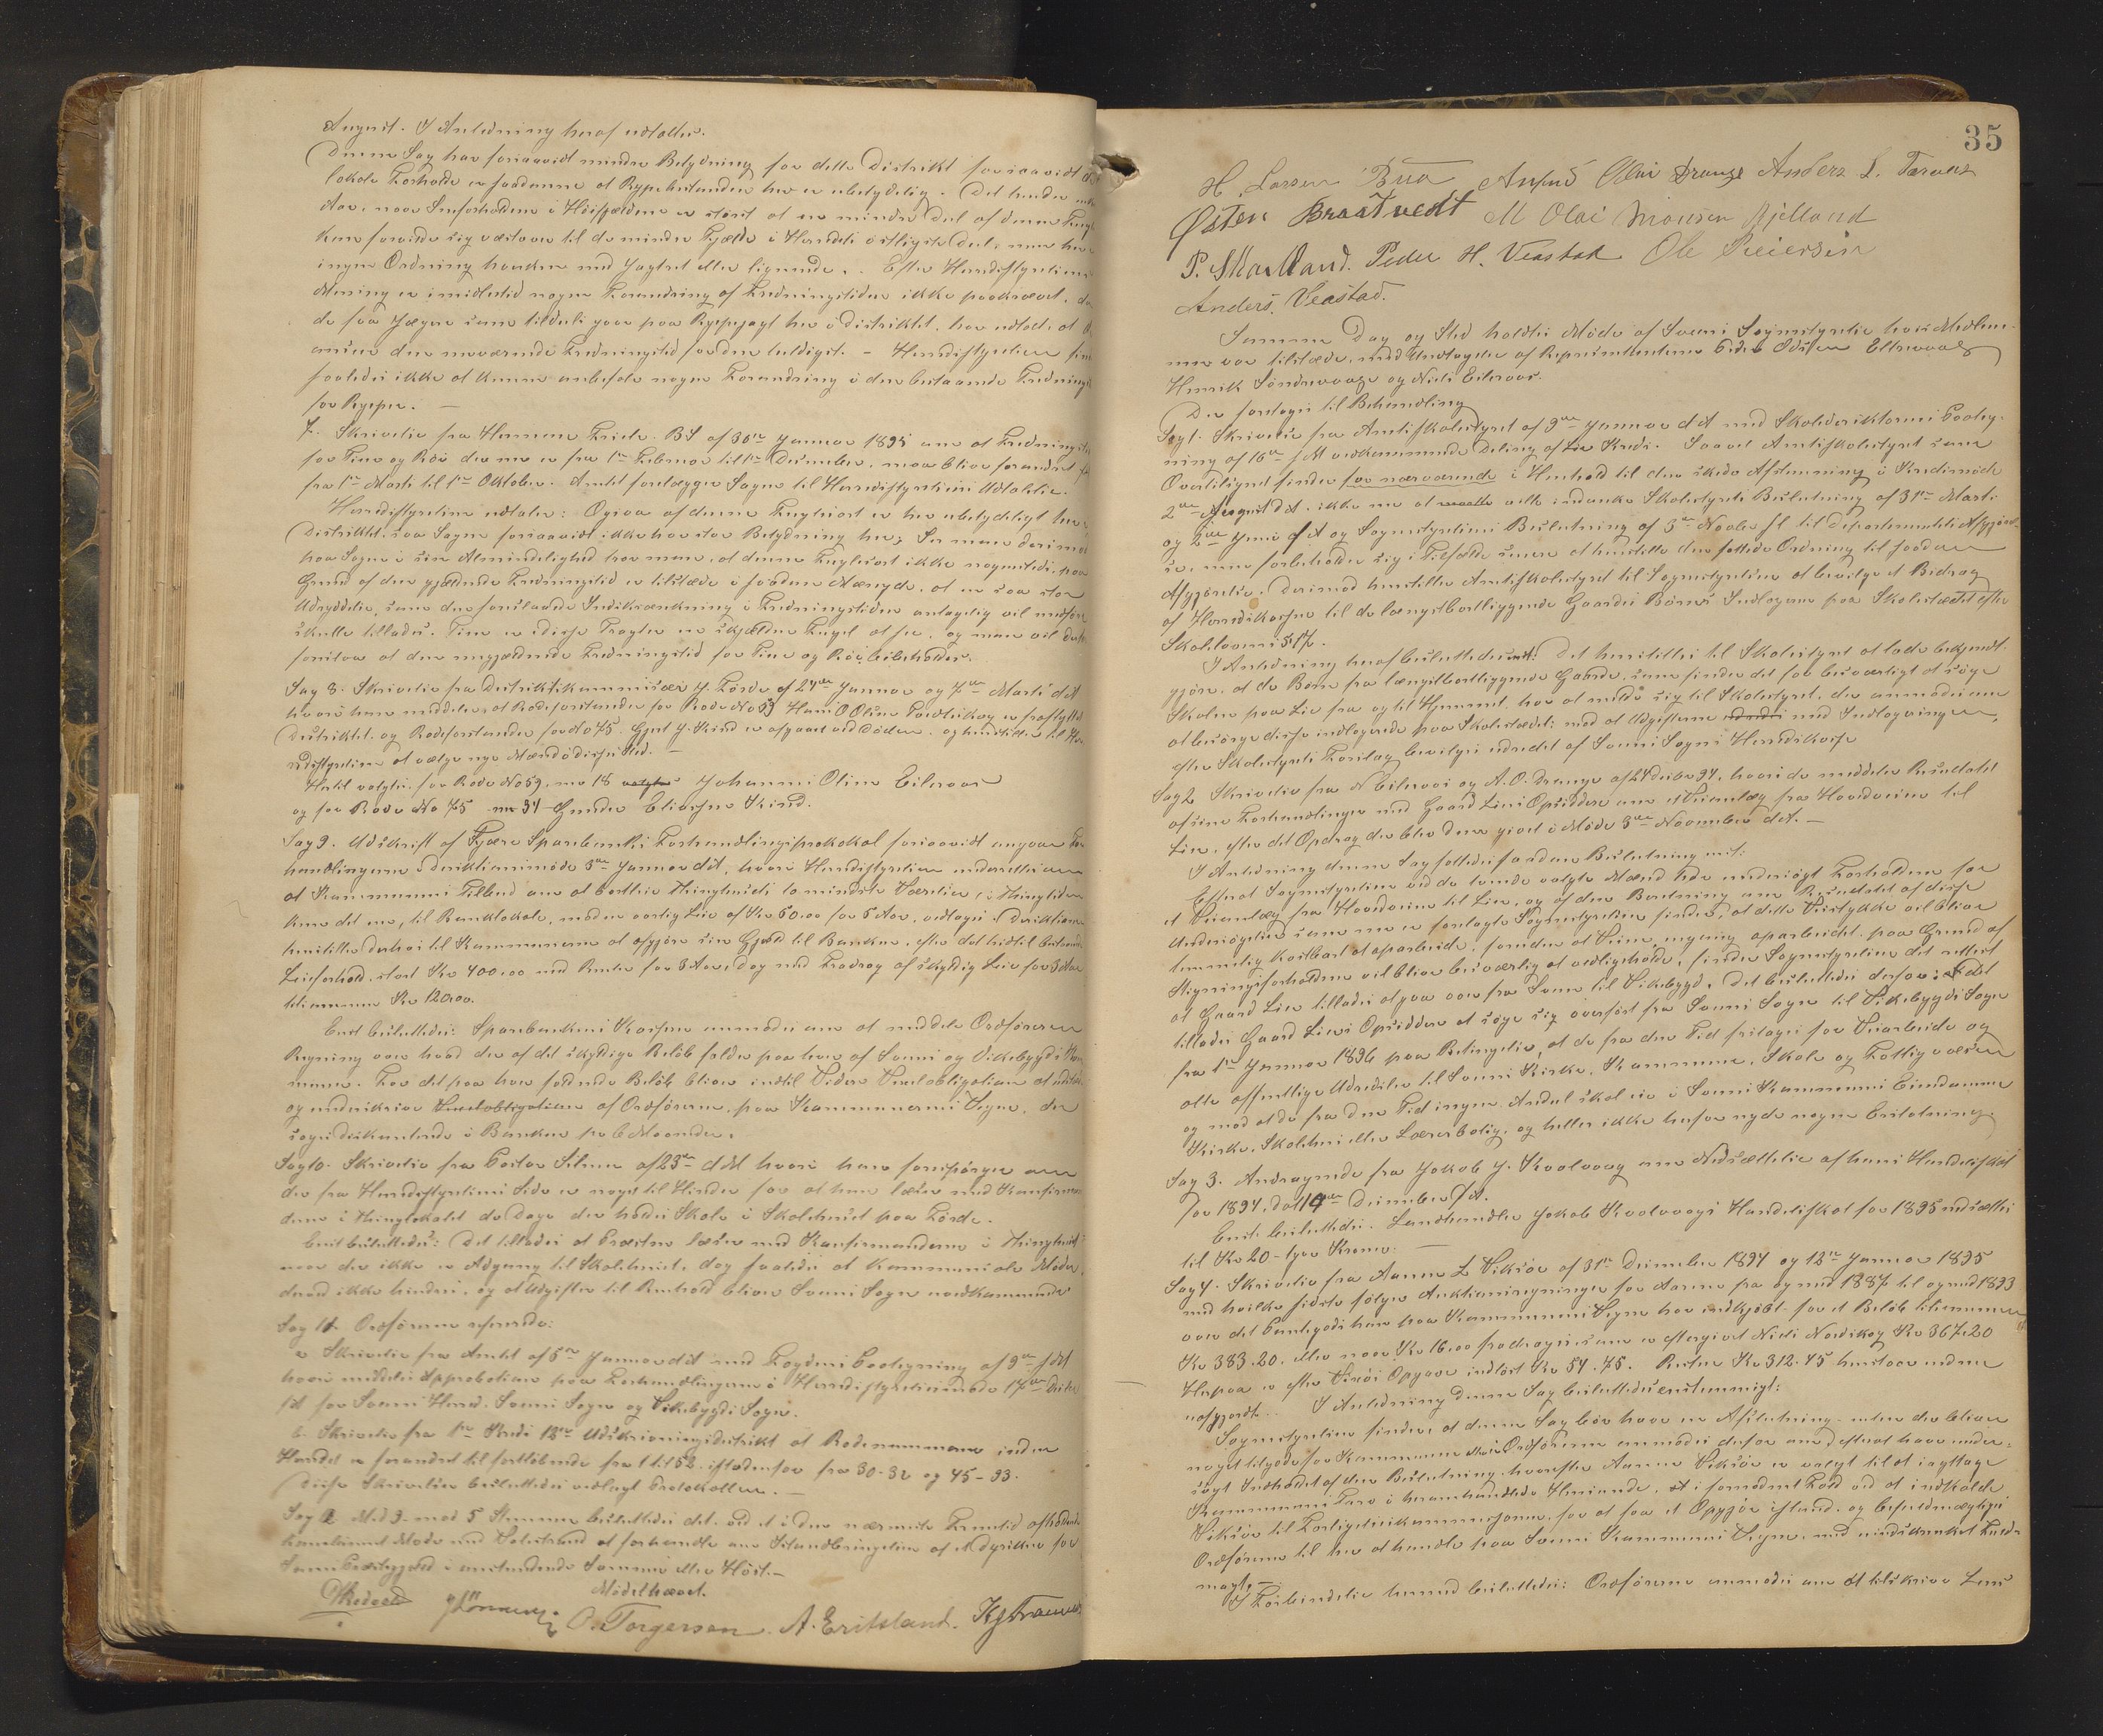 August. I Anledning heraf udtales.
Denne Sag har forsaavidt mindre Betydning for dette Distrikt forsaavidt de
lokale Forholde er saadanne at Rypebestanden her er ubetydelig. Det hender
Aar, naar Sneforholdene i Høifjeldene er störst at en mindre Del af denne Fugl
kan forvilde sig vestover til de mindre Fjelde i Herredets östligste Del, men her
ingen Ordning hverken med Jagtret eller lignende. Efter Herredsstyrelsens
Mening er imidlertid nogen Forandring af Fredningstiden ikke paakrævet, da
de faa Jægere som tildels gaar paa Rypejagt her i Distriktet, har udtalt, at de
anser den nuværende Fredningstid for den heldigst. - Herredsstyrelsen
saaledes ikke at kunne anbefale nogen Forandring i den bestaaende Fredningstid
for Ryper. -
7. Skrivelse fra Herman Friele BS af 30te Januar 1895 om at Fredningstiden
for Tiur og Röi der nu er fra 1te Februar til 1te December, maa blive forandret
fra 1te Marts til 1te Oktober. Amtet forelægger Sagen til Herredsstyrelsens Udtalelse.
Herredsstyrelsen udtaler: Ogsaa af denne Fugleart er her ubetydeligt
Distriktet, saa Sagen forsaavidt ikke har stor Betydning her; Ser man derimod
paa Sagen i sin Almindelighed tror man, at denne Fugleart ikke nogensteds, paa
Grund af den gjældende Fredningstid er tilstede i saadan Mængde, at en saa stor
Udryddelse, som den foreslaaede Indskrænkning i Fredningstiden antagelig vil medføre
skulle tillades. Tiur er i disse Tragter en skjælden Fugel at se, og man vil
foreslaa at den nugjældende Fredningstid for Tiur og Röi beibeholdes.
Sag 8. Skrivelse fra Distriktskommissær J. Förde af 24de Januar og 7de Marts d A
hvori han meddeler at Rodeforstander for Rode No 59 Hans O Olsen Tveitaskog er fraflyttet
Distriktet og Rodeforstander for No 75. Gjert J Skired er afgaaet ved Döden, og henstiller til
redsstyrelsen at vælge nye Mænd i disses Sted. -
Hertil valgtes: for Rode No 59, nu 18 Johannes Olsen Eilevaag
og for Rode No 75 nu 34 Gunder Eliassen Skired.
Sag 9. Udskrift af Fjære Sparebanks Forhandlingsprotokol forsaavidt angaar
handlingerne i Direktionsmöde 5te Januar d A, hvori Herredsstyrelsen underrettes om
at Kommunens Tilbud om at bortleie Thinghusets to mindste Værelser i
kan det nu, til Banklokale, mod en aarlig Leie af Kr 60.00 for 5 Aar, vedtages. Direktionen
henstiller derhos til Kommunerne at afgjöre sin Gjæld til Banken, efter det hidtil bestaaende
Leieforhold, stort Kr 400.00 med Renter for 3 Aar, dog med Fradrag af skyldig Leie for 3 Aar
tilsammen Kr 120.00.
Enst. besluttedes: Sparebankens Kasserer anmodes om at meddele Ordföreren
Regning over hvad der af det skyldige Belöb falder paa hver af Sveens og Vikebygds
muner. For det paa hver faldende Belöb bliver indtil Videre Vexelobligation at udstede
og underskrive Vexelobligation af Ordföreren, paa Kommunernes Vegne, der
söges diskonterede i Banken pr 6 Maaneder.
Sag 10. Skrivelse fra Pastor Selmer af 23de d M hvori han forespörger om
der fra Herredsstyrelsens Side er noget til Hinder for at han læser med Konfirman
derne i Thinglokalet de Dage der holdes Skole i Skolehuset paa Förde.
Enst. besluttedes: Det tillades at Præsten læser med Konfirmanderne i Thinghuset
naar der ikke er Adgang til Skolehuset, dog saaledes at Kommunale Möder
derved ikke hindres, og at Udgifter til Renhold bliver Sveens Sogn uvedkommende.
Sag 11. Ordföreren refererede:
a. Skrivelse fra Amtet af 5te Januar d A med Fogdens Paategning af 9de s M
hvori meddeles Approbation paa Forhandlingerne i Herredsstyrelsesmöde 17de Decbr
f A for Sveens Herred, Sveens Sogn og Vikebygds Sogn.
b. Skrivelse fra 1ste Kreds 12te Udskrivningsdistrikt at Rodenummerne inden
Herredet er forandret til fortlöbende fra 1 til 52. istedenfor fra 30-32 og 45-93.
Disse Skrivelser besluttedes vedlagt Protokollen. -
Sag 12. Med 9 mod 5 Stemmer besluttedes det, ved et i den nærmeste Fremtid afholdende
kombineret Möde med Valestrand at forhandle om Istandbringelsen af et Dyrskue for
Sveens Præstegjæld i anstundende Sommer eller Höst. -
Mödet hævet.
O. Torgersen. A. Eritsland.
35
H. Larsen Bua Olai Drange Anders L. Tarevas
Östen Braatvedt M Olai Monsen Gjelland
P. Skartland. Peder H. Veastad Ole Reiersen
Anders Veastad.
Samme Dag og Sted holdtes Möde af Sveens Sognestyrelse hvis Medlem-
mer var tilstede, med Undtagelse af Repræsentanterne Peder Odsen Ellevaag
Henrik Söndrevaage og Niels Eilevaag.
Der foretoges til Behandling
Sag 1. Skrivelse fra Amtsskolestyret af 9de Januar d A med Skoledirektörens Paateg-
ning af 16de s M vedkommende Deling af Lie Kreds. Saavel Amtsskolestyret som
Overtilsynet finder for nærværende i Henhold til den skede Afstemning i Kredsmöde
2den August d A. ikke nu at ville indanke Skolestyrets Beslutning af 31te Marts
og 2den Juni f A og Sognestyrelsens Beslutning af 3de Novbr f A til Departementets Afgjörel-
se, men forbeholder sig i Tilfælde senere at henstille den fattede Ordning til saadan
Afgjörelse. Derimod henstiller Amtsskolestyret til Sognestyrelsen at bevilge et Bidrag
af Herredskassen til de længstbortliggende Gaardes Börns Indlogering paa Skolestedet efter
Skolelovens § 17.
I Anledning heraf besluttedes enst: Det henstilles til Skolestyret at lade bekjendt-
gjöre, at de Börn fra længstbortliggende Gaarde, som finder det for besværligt at söge
Skolen paa Lie fra og til Hjemmet, har at melde sig til Skolestyret, der anmodes om
at besörge disse indlogerede paa Skolestedet, mod at Udgifterne med Indlogeringen,
efter Skolestyrets Forslag bevilges udredet af Sveens Sogns Herredskasse
Sag 2. Skrivelse fra N Eilevaag og A. O. Drange af 27 Decbr 94, hvori de meddeler Resultatet
af sine Forhandlinger med Gaard Lies Opsiddere om et Veianlæg fra Hovedveien til
Lie, efter det Opdrag der blev dem givet i Möde 3de November d A. -
I Anledning denne Sag fattedes saadan Beslutning enst:
Efterat Sognestyrelsen ved de tvende valgte Mænd har undersögt Forholdene for
et Veianlæg fra Hovedveien til Lie, og af den Beretning om Resultatet af disse
Undersögelser som nu er forelagt Sognestyrelsen finder, at dette Veistykke vil blive
temmelig kostbart at oparbeide, foruden at Veien, engang oparbeidet, paa Grund af
Stigningsforholdene vil blive besværlig at vedligeholde, finder Sognestyrelsen det rettest
at Gaard Lie tillades at gaa over fra Sveen til Vikebygd. Det besluttedes derfor: at det
tillades Gaard Lies Opsiddere at söge sig overfört fra Sveens Sogn til Vikebygds Sogn
fra 1te Januar 1896 paa Betingelse, at de fra den Tid fritages for Veiarbeide og
alle offentlige Udredsler til Sveens Kirke, Kommune, Skole og Fattigvæsen
og mod at de fra den Tid ingen Andel skal eie i Sveens Kommunes Eiendomme
Kirke, Skolehus eller Lærerbolig, og heller ikke herfor nyde nogen Erstatning.
Sag 3. Andragende fra Jakob J. Kvalvaag om Nedsættelse af hans Handelsskat
for 1894, dat 14de December f A.
Enst. besluttedes: Landhandler Jakob Kvalvaags Handelsskat for 1895 nedsættes
til Kr 20 - tyve Kroner. -
Sag 4. Skrivelse fra Aanen L Viksöe af 31te December 1894 og 12te Januar 1895
med hvilke sidste fölger Auktionsregninger for Aarene fra og med 1887 til og med 1893
over det Panteg ods han paa Kommunens Vegne har indkjöbt for et Belöb tilsammen
Kr 383.20. eller naar Kr 16.00 fradrages, som er eftergivet Niels Nordskog Kr 367.20
Herpaa er efter Viksös Opgave indlöst Kr 54.75. Resten Kr 312.45 henstaar endnu
uafgjordt. I Anledning denne Sag besluttedes enstemmigt:
Sognestyrelsen finder, at denne Sag bör have en Afslutning, uden der bliver
noget tilgode for Kommunen Ordföreren anmodes derfor om, efterat have under-
sögt Indholdet af den Beslutning, hvorefter Aanen Viksöe er valgt til at iagttage
Kommunens Tarv i heromhandlede Henseende, at i fornödent Fald ved at indkalde
Viksöe til Forligelseskommissionen, for at faa et Opgjör istand, og befuldmægtiges
Ordföreren til her at handle paa Sveens Kommunes Vegne, med uindskrænket Fuld-
magt. -
I Forbindelse hermed besluttedes: Ordföreren anmodes om at tilskrive Lens